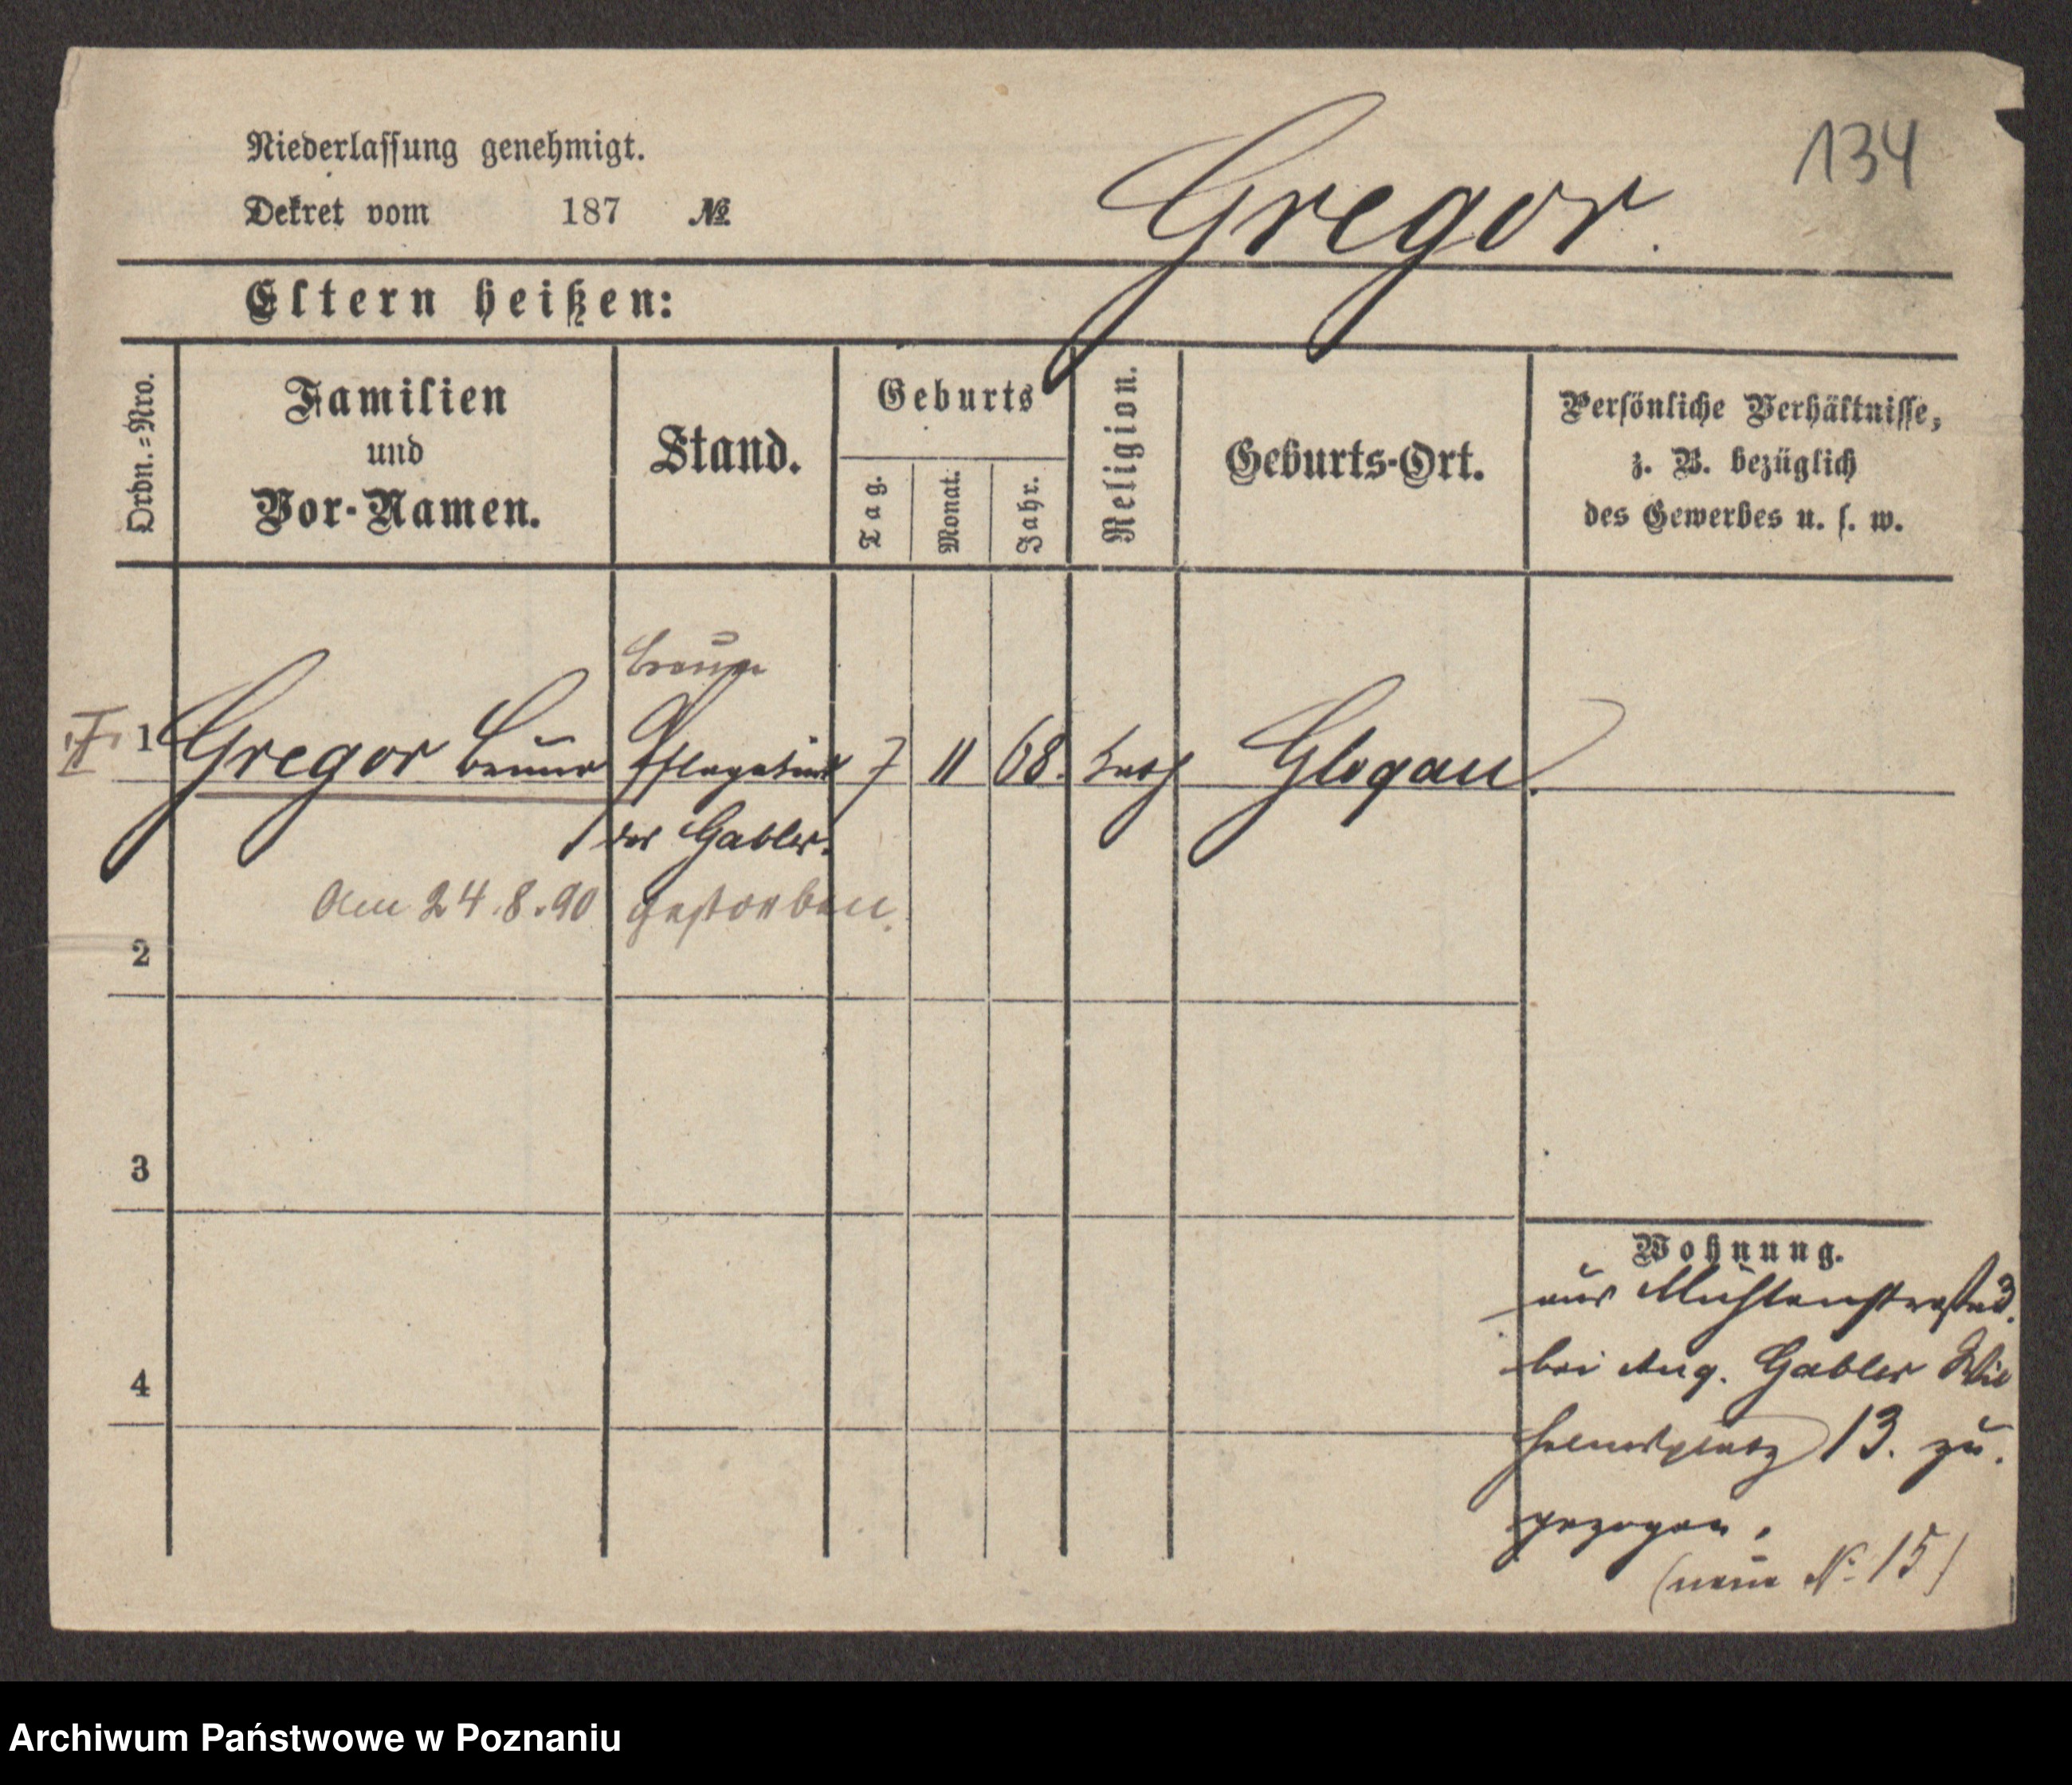 134
Niederlassung genehmigt.
Dekret vom 187 №
Gregor.
Eltern heißen:
Ordn.=Nro.
Familien
und
Vor-Namen.
Stand.
Geburts
Tag.
Monat.
Jahr.
Religion.
Geburts-Ort.
Persönliche Verhältnisse,
z. B. bezüglich
des Gewerbes u. s. w.
1 Gregor Bruno Pflegekind 7 11 68. kath Glogau.
der Gabler.
Am 24.8.90 gestorben.
2
3
4
Wohnung.
aus Mühlenstraße 3.
bei Aug. Gabler Wil
helmsplatz 13. zu.
gezogen.
(neue №. 15)
Archiwum Państwowe w Poznaniu